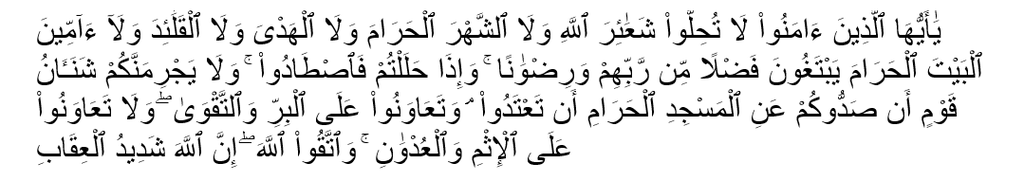 يَٰٓأَيُّهَا ٱلَّذِينَ ءَامَنُوا۟ لَا تُحِلُّوا۟ شَعَٰٓئِرَ ٱللَّهِ وَلَا ٱلشَّهْرَ ٱلْحَرَامَ وَلَا ٱلْهَدْىَ وَلَا ٱلْقَلَٰٓئِدَ وَلَآ ءَآمِّينَ
ٱلْبَيْتَ ٱلْحَرَامَ يَبْتَغُونَ فَضْلًا مِّن رَّبِّهِمْ وَرِضْوَٰنًا ۚ وَإِذَا حَلَلْتُمْ فَٱصْطَادُوا۟ ۚ وَلَا يَجْرِمَنَّكُمْ شَنَـَٔانُ
قَوْمٍ أَن صَدُّوكُمْ عَنِ ٱلْمَسْجِدِ ٱلْحَرَامِ أَن تَعْتَدُوا۟ ۘ وَتَعَاوَنُوا۟ عَلَى ٱلْبِرِّ وَٱلتَّقْوَىٰ ۖ وَلَا تَعَاوَنُوا۟
عَلَى ٱلْإِثْمِ وَٱلْعُدْوَٰنِ ۚ وَٱتَّقُوا۟ ٱللَّهَ ۖ إِنَّ ٱللَّهَ شَدِيدُ ٱلْعِقَابِ